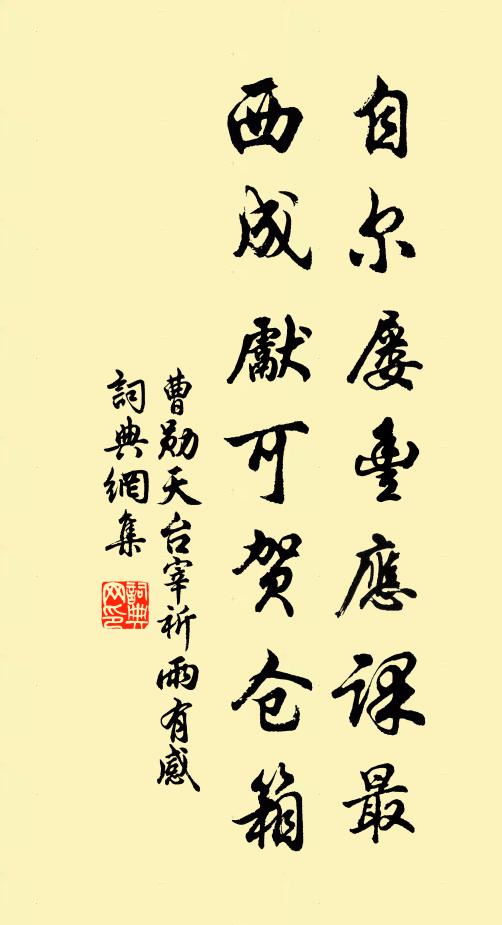 自尔屡豐應課最
西成獻可贺仓箱
曹勋天台宰祈雨有感
詞典網集
詞典
网印